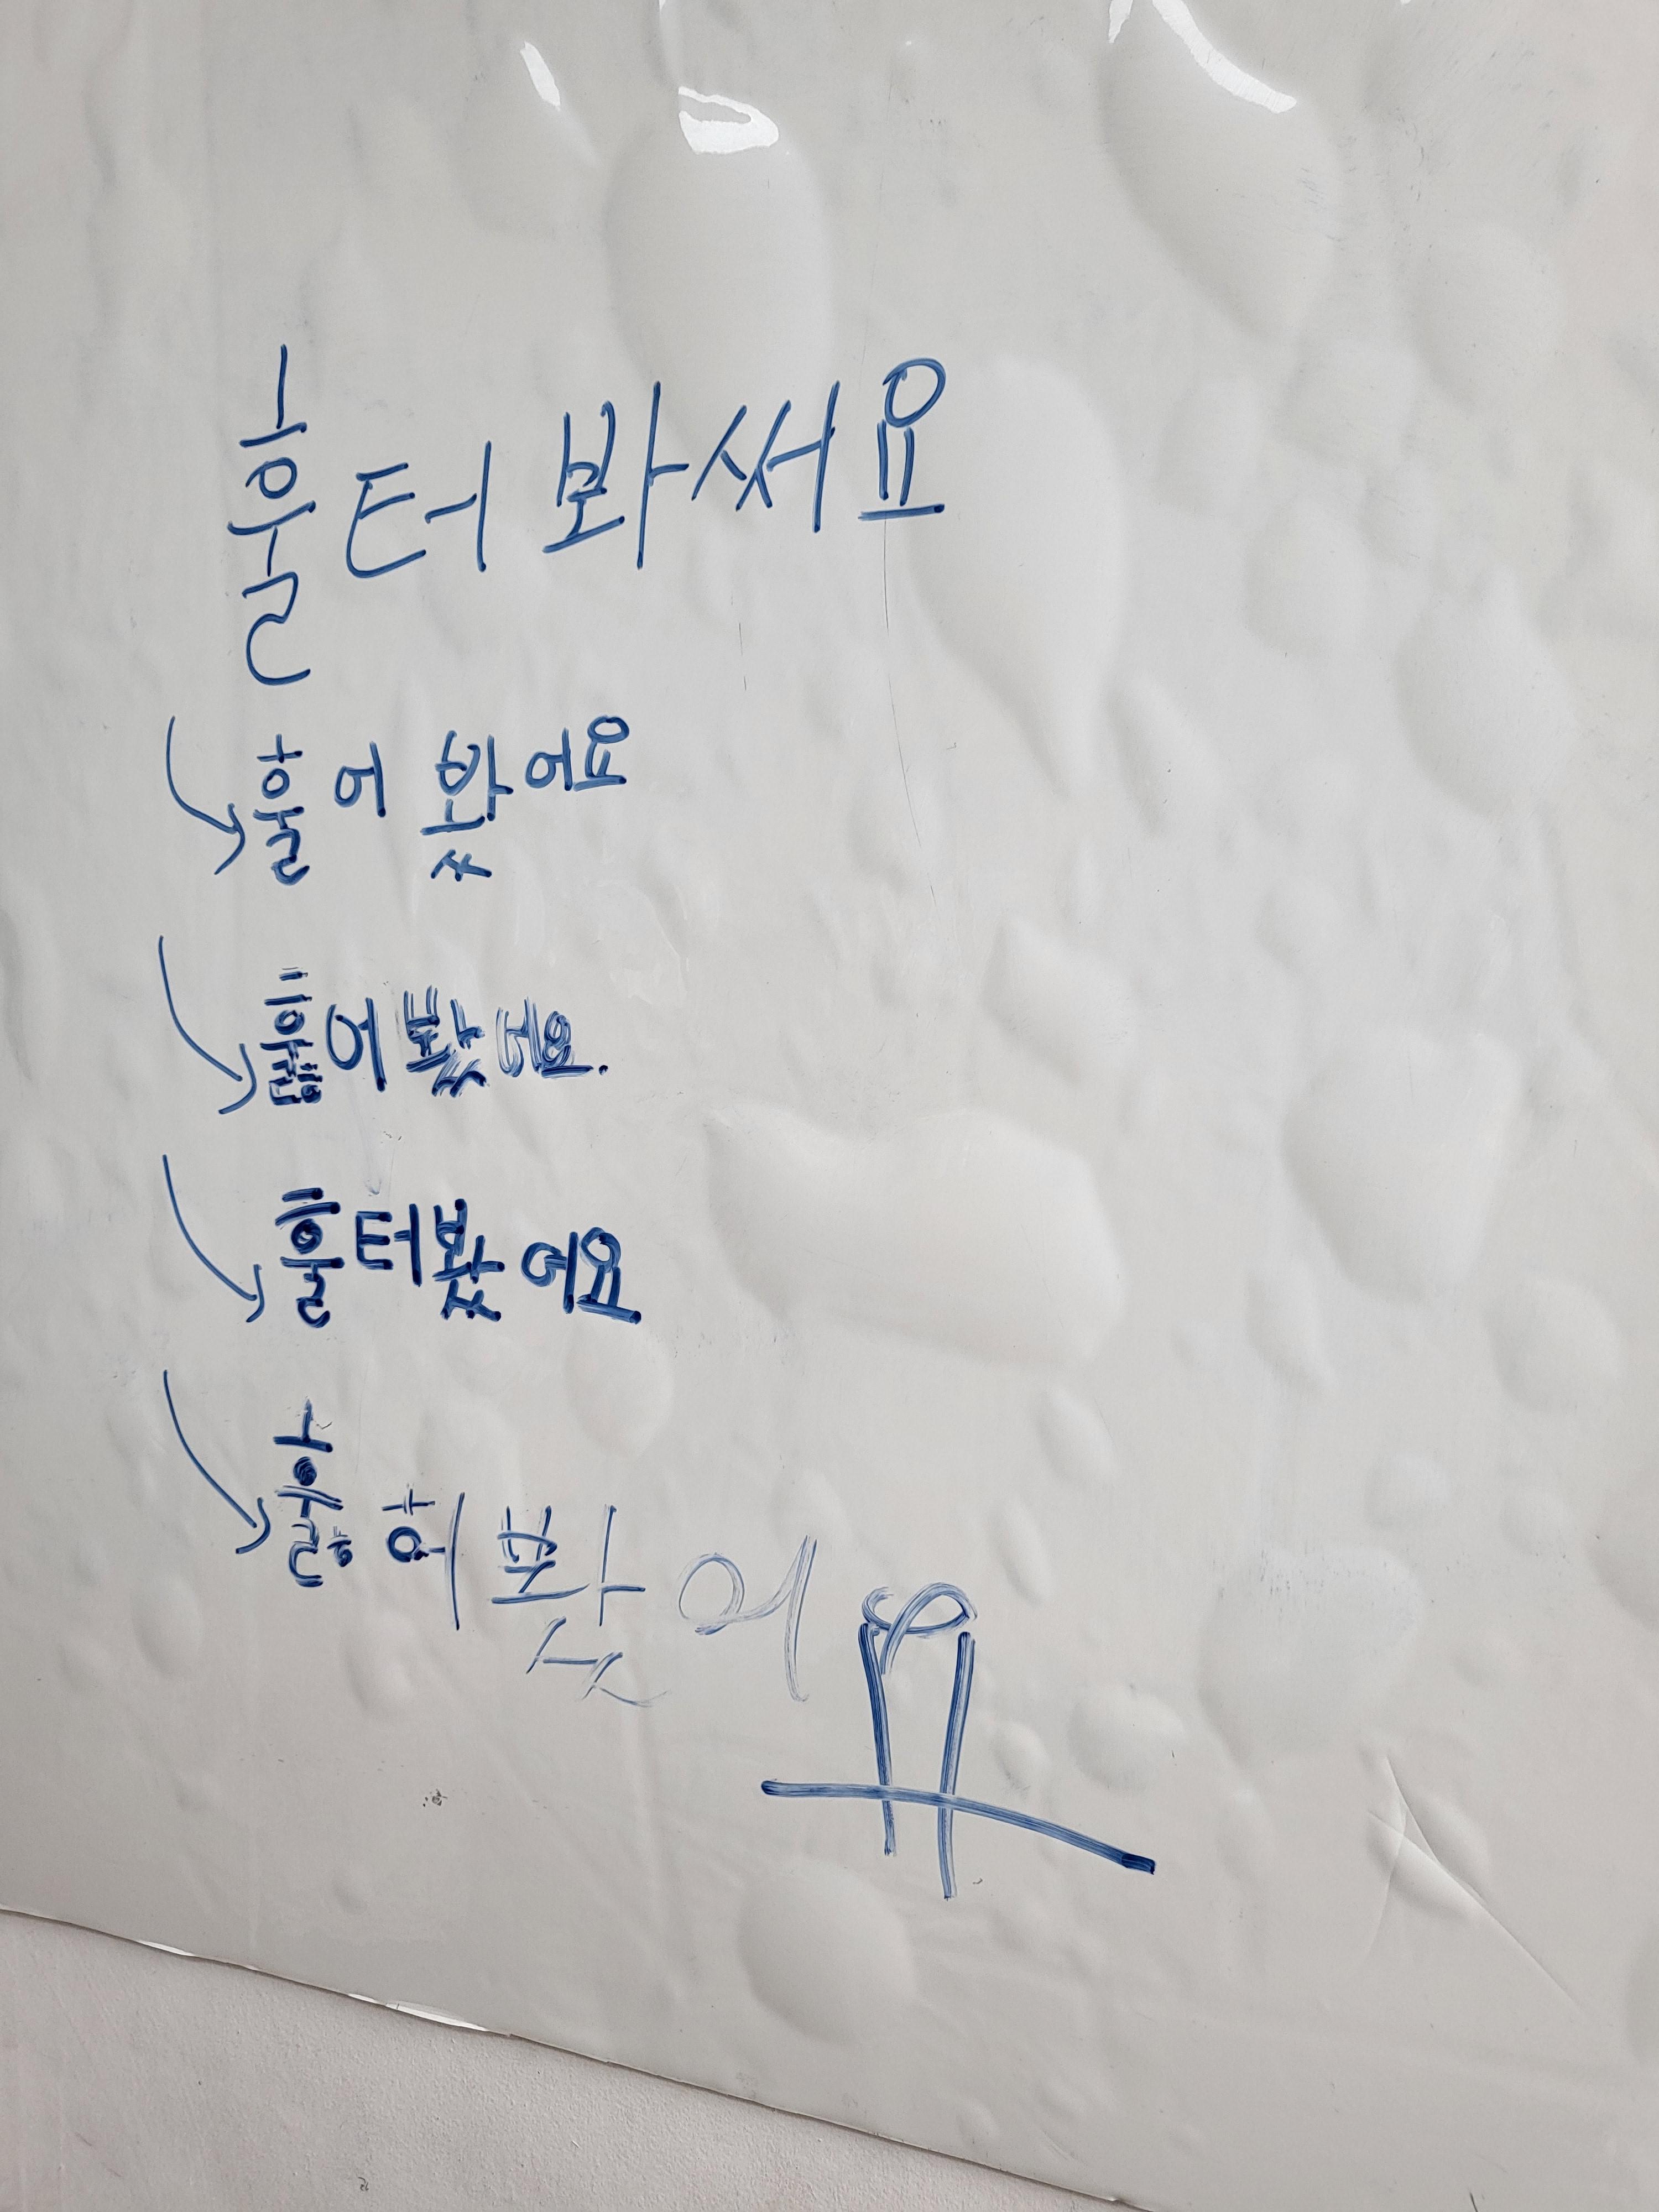 훌터 봐써요
훌어 봤어요
훑어 봤어요.
훌터봤어요
훓허 봤어요